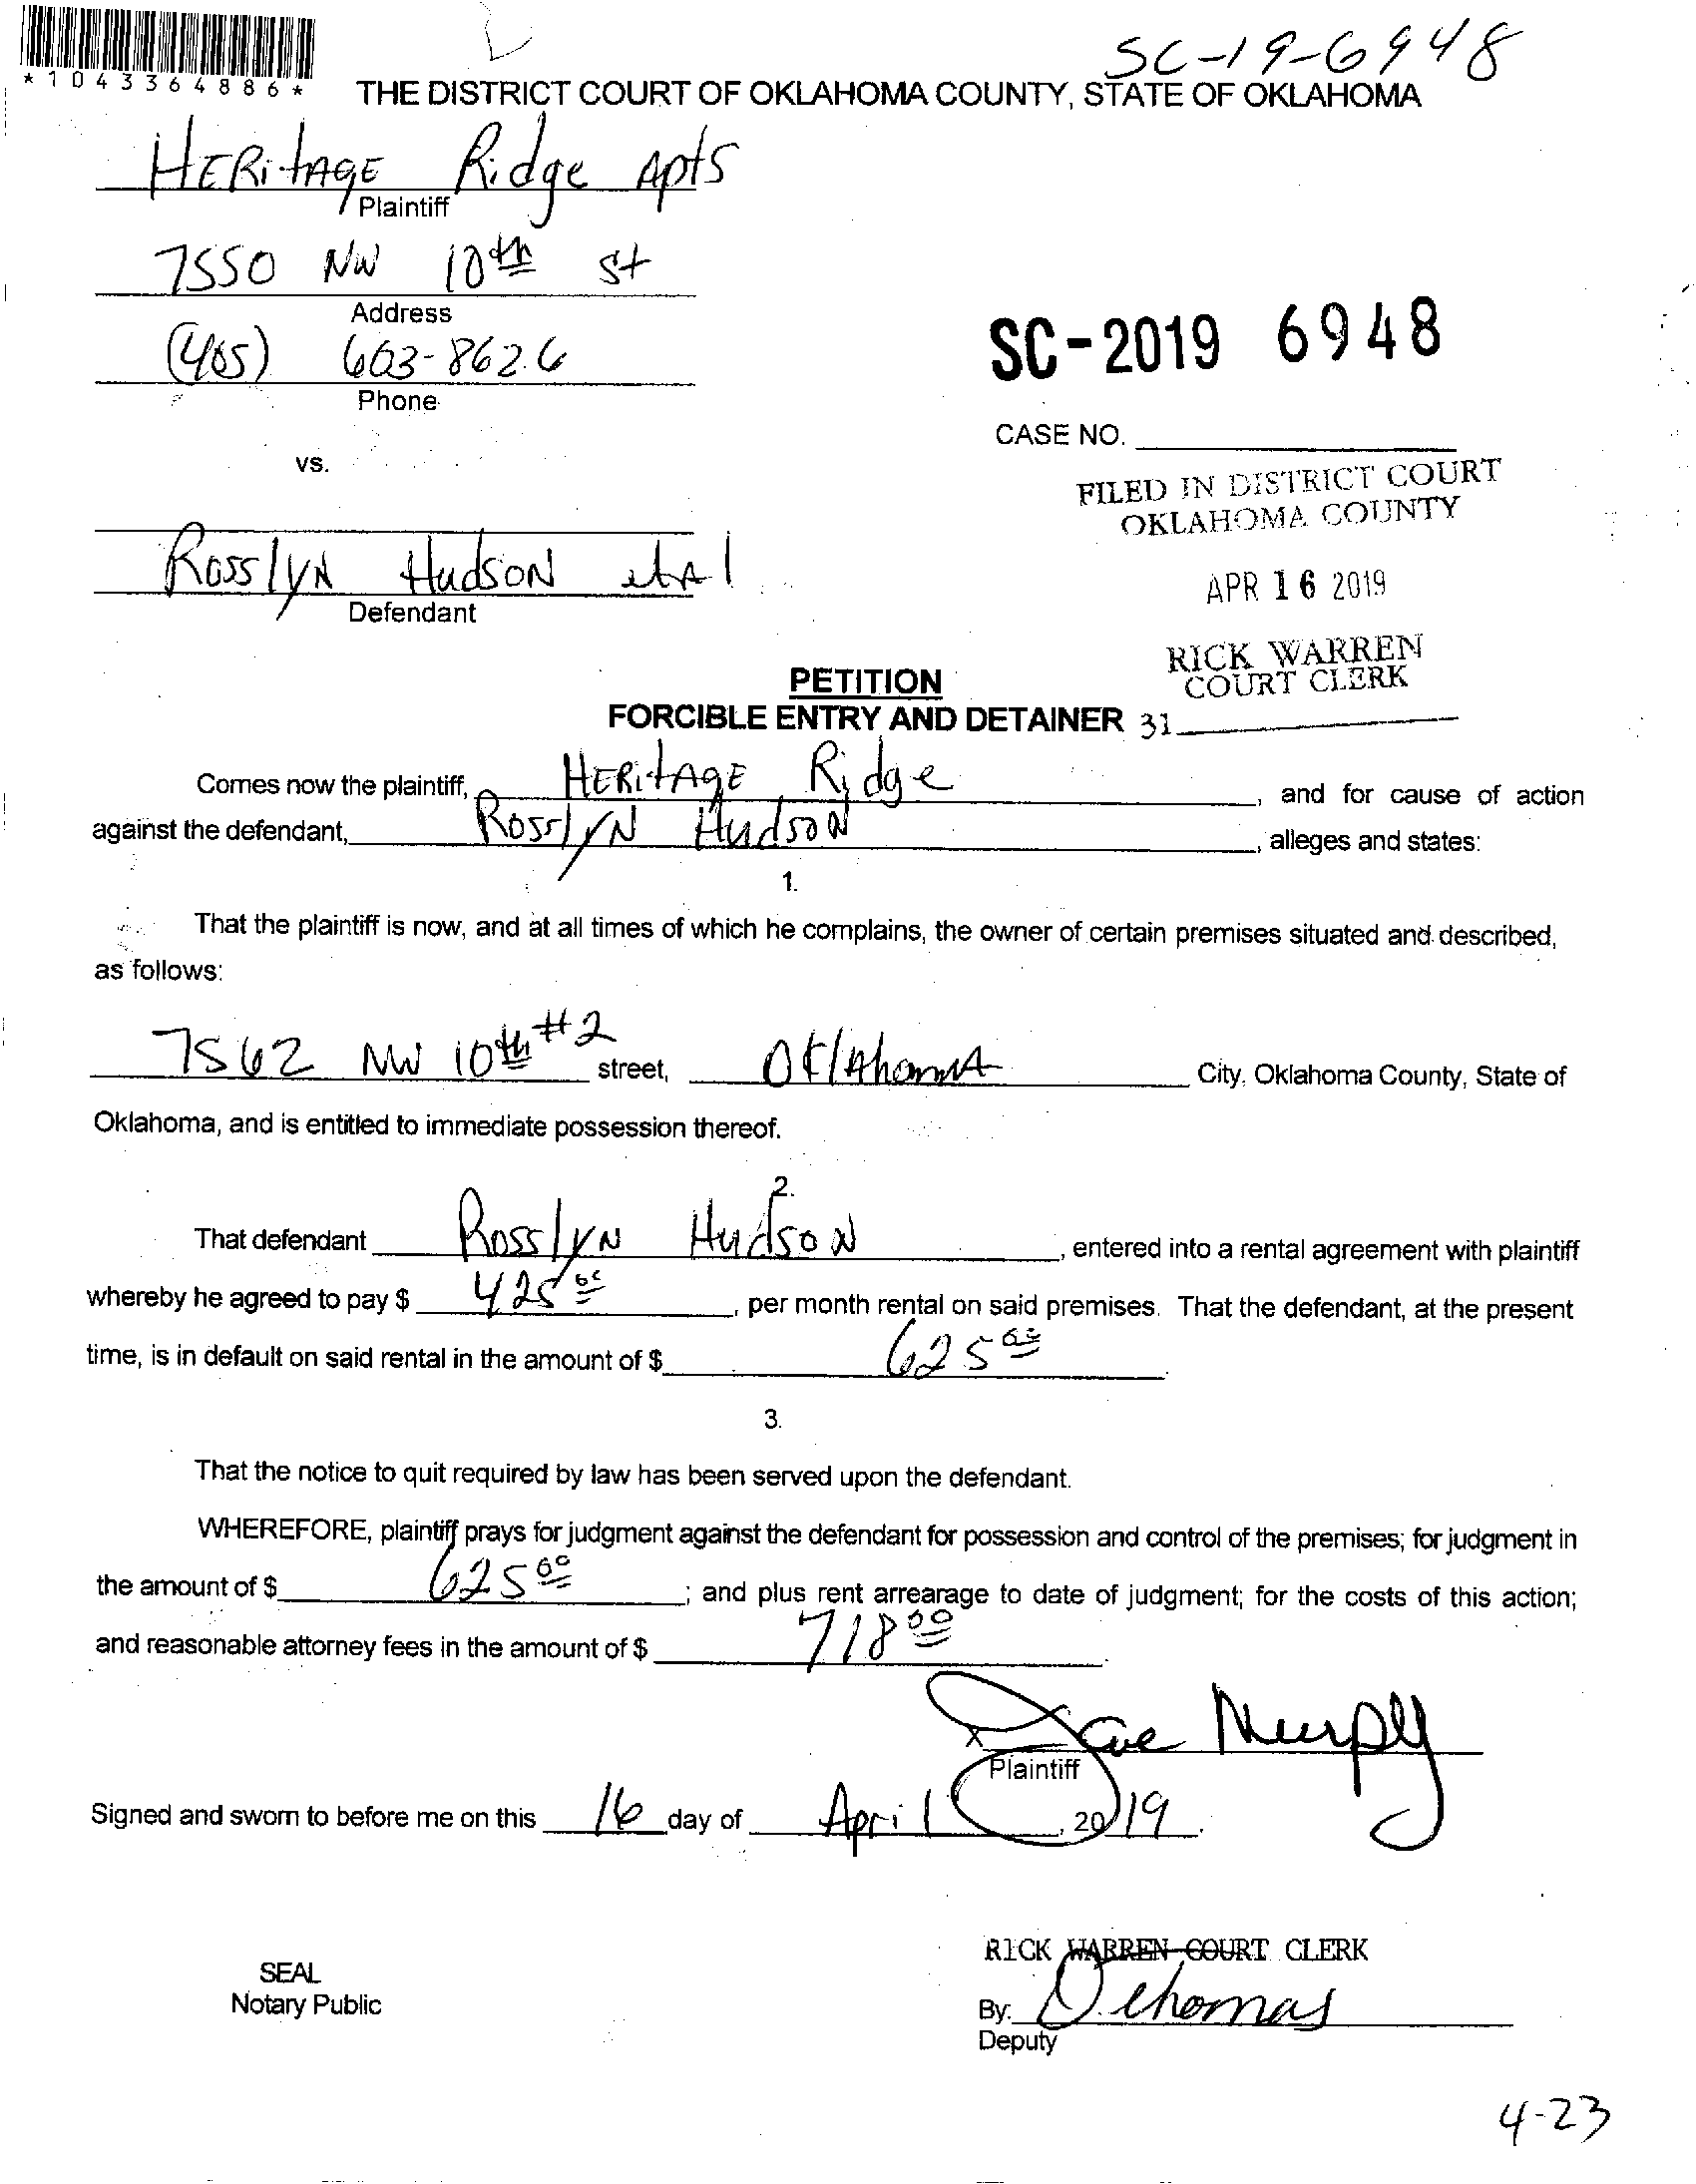 SC-19-6948
*1043364886*
THE DISTRICT COURT OF OKLAHOMA COUNTY, STATE OF OKLAHOMA
HERitAgE Ridge Apts
Plaintiff
7550 NW 10th St
Address
(405) 603-8626
Phone
SC-2019 6948
CASE NO.
vs.
FILED IN DISTRICT COURT
OKLAHOMA COUNTY
RosslyN HudsoN et Al
Defendant
APR 16 2019
RICK WARREN
COURT CLERK
PETITION
FORCIBLE ENTRY AND DETAINER 31
Comes now the plaintiff, HERitAgE Ridge, and for cause of action
against the defendant, RosslyN HudsoN, alleges and states:
1.
That the plaintiff is now, and at all times of which he complains, the owner of certain premises situated and described,
as follows:
7562 NW 10th #2 street, OklAhomA City, Oklahoma County, State of
Oklahoma, and is entitled to immediate possession thereof.
2.
That defendant RosslyN HudsoN, entered into a rental agreement with plaintiff
whereby he agreed to pay $ 425 00, per month rental on said premises. That the defendant, at the present
time, is in default on said rental in the amount of $ 625 00.
3.
That the notice to quit required by law has been served upon the defendant.
WHEREFORE, plaintiff prays for judgment against the defendant for possession and control of the premises; for judgment in
the amount of $ 625 00; and plus rent arrearage to date of judgment; for the costs of this action;
and reasonable attorney fees in the amount of $ 718 00.
X Murphy
Plaintiff
Signed and sworn to before me on this 16 day of April, 2019.
RICK WARREN COURT CLERK
SEAL
Notary Public
By: D. Thomas
Deputy
4-23